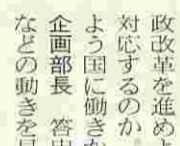 政改革を進めよ
対応するのか
よう国に働きか
企画部長　答申
などの動きを見